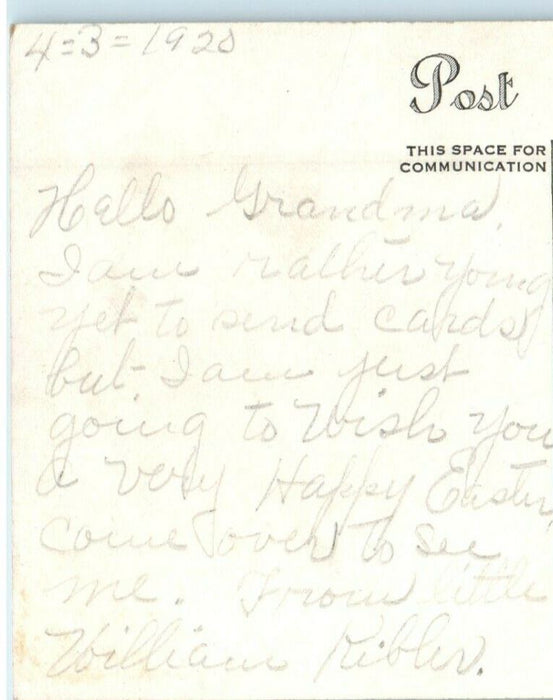 4=3=1920
Post
THIS SPACE FOR
COMMUNICATION
Hello Grandma,
I am rather young
yet to send cards
but I am just
going to Wish you
a very Happy Easter
come over to see
me. From little
William Kibler.